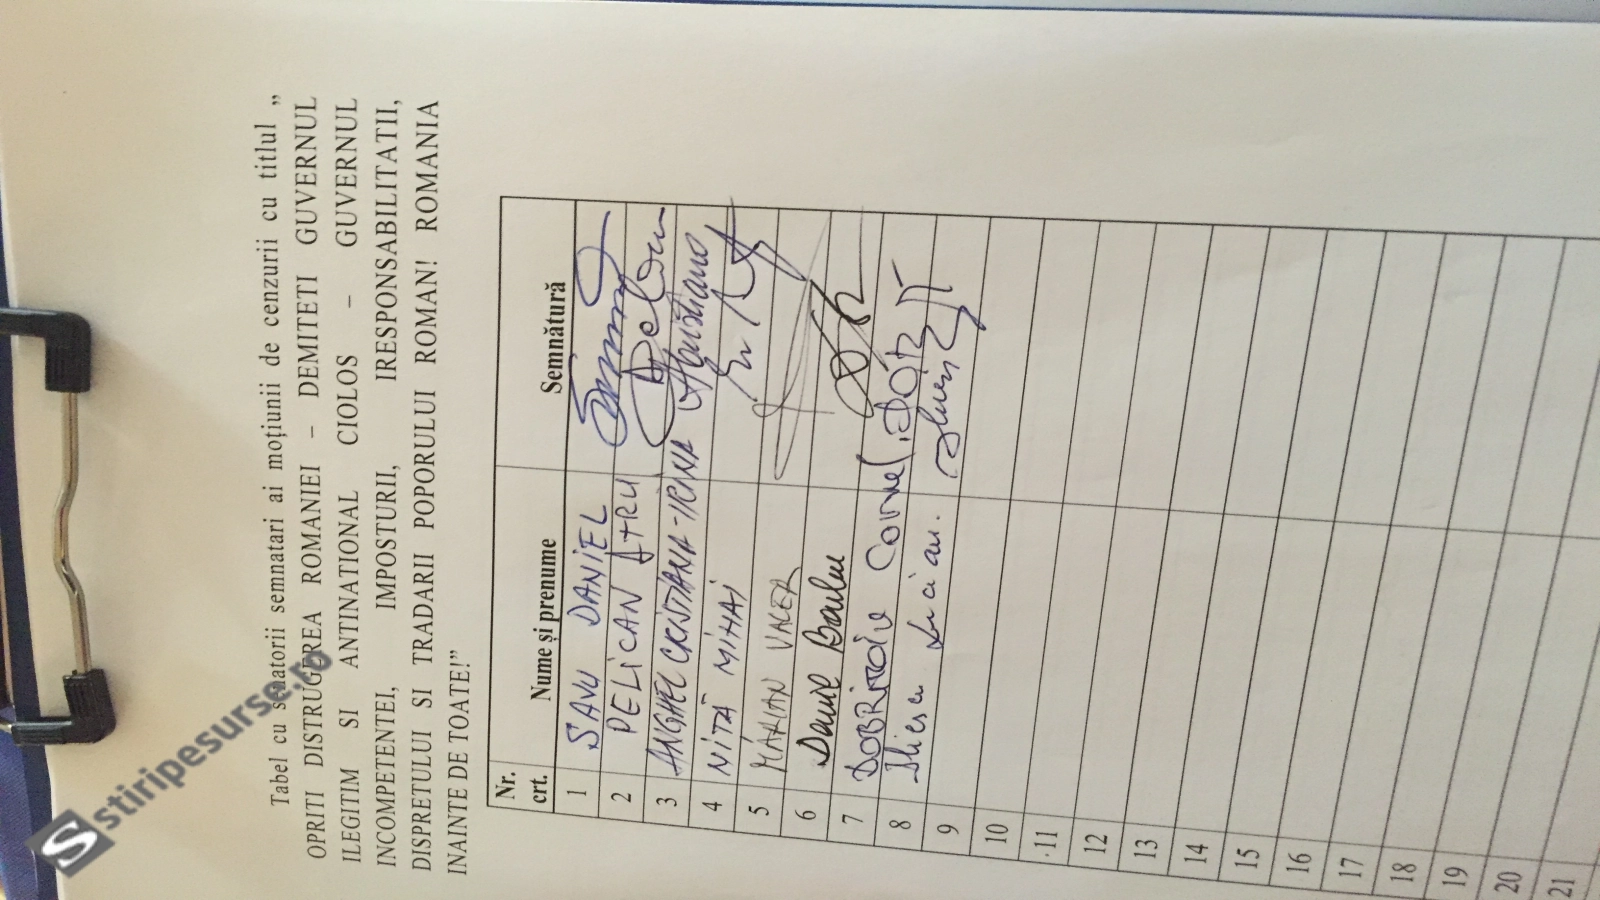 Tabel cu senatorii semnatari ai moțiunii de cenzurii cu titlul „
OPRITI DISTRUGEREA ROMANIEI – DEMITETI GUVERNUL
ILEGITIM SI ANTINATIONAL CIOLOS – GUVERNUL
INCOMPETENTEI, IMPOSTURII, IRESPONSABILITATII,
DISPRETULUI SI TRADARII POPORULUI ROMAN! ROMANIA
INAINTE DE TOATE!”
Nr. crt. Nume și prenume Semnătură
1 SAVU DANIEL
2 PELICAN
3 ANGHEL CRISTIANA-IRINA
4 NIȚĂ MIHAI
5 MARIAN VALER
6 Daniel Barbu
7 DOBRIȚOIU Corneliu
8 Iliescu Lucian.
9
10
11
12
13
14
15
16
17
18
19
20
21
stiripesurse.ro